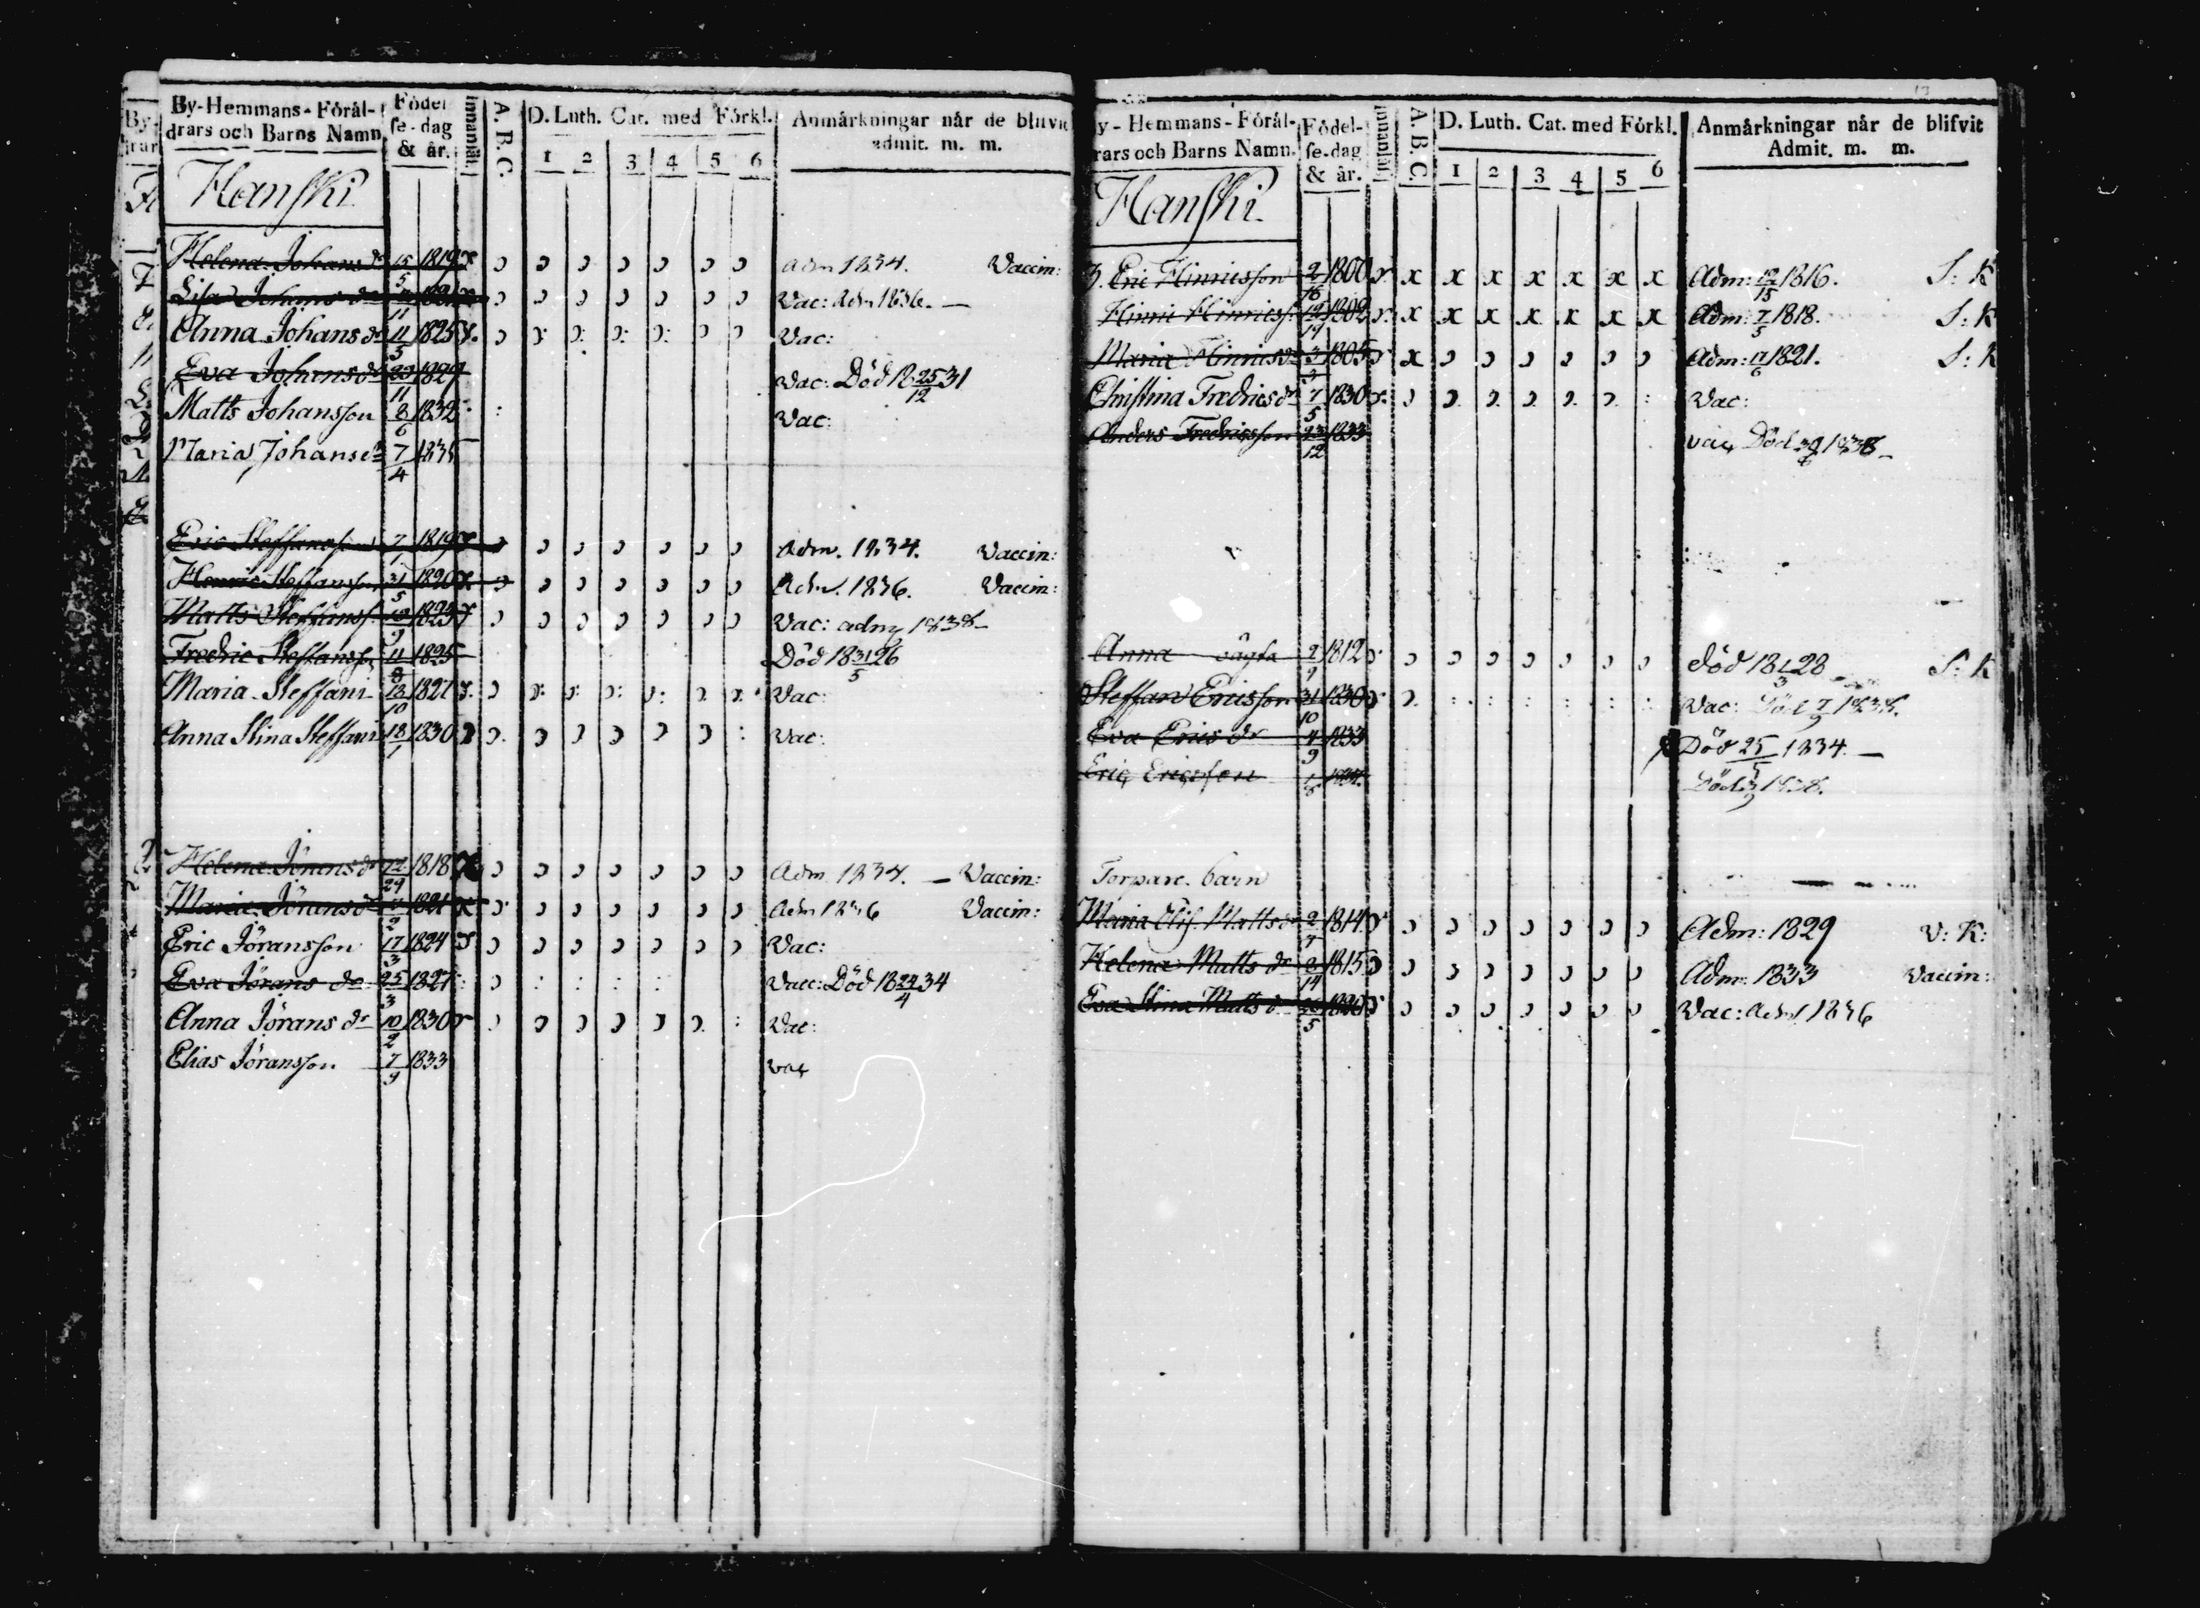 By-Hemmans-Förål-
drars och Barns Namn.
Födel
se-dag
& år.
Innanläs.
A. B. C.
D. Luth. Cat. med Förkl.
1 2 3 4 5 6
Anmärkningar når de blifvit
admit. m. m.
Hanski
Helena Johans dr 15/5 1819 x Adm 1834. Vaccin:
Lisa Johans dr Vac: Adm 1836. —
Anna Johans dr 11/5 1825 x. Vac:
Eva Johans dr 23/11 1829 Vac: Död 18 25/12 31
Matts Johansson 8/6 1832 Vac:
Maria Johans dr 7/4 1835
Eric Steffansson 7/1 1819 x Adm. 1834. Vaccin:
Henric Steffansson 31/5 1820 x. Adm. 1836. Vaccin:
Matts Steffanss. 1823 x Vac: adm 1838–
Fredric Steffansson 11/8 1825 Död 18 31/5 26
Maria Steffans 13/10 1827 x. Vac:
Anna Stina Steffans 18/1 1830 Vac:
Helena Jörans dr 1818 x Adm 1834. — Vaccin:
Maria Jörans dr 1821 x Adm 1836 Vaccin:
Eric Jöransson 17/3 1824 x Vac:
Eva Jörans dr 25/3 1827 Vacc: Död 18 24/4 34
Anna Jörans dr 10/2 1830 Vac:
Elias Jöransson 7/9 1833 Vac
y-Hemmans-Förål-
rars och Barns Namn.
Födel-
se-dag
& år.
Innanläs.
A. B. C.
D. Luth. Cat. med Förkl.
1 2 3 4 5 6
Anmärkningar når de blifvit
Admit. m. m.
Hanski.
3. Eric Hinricsson 1800 x. x x x x x x x Adm: 1816. S: K
Hinric Hinricss. 1802 x. x x x x x x x Adm: 7/5 1818. S: K
Maria Hinrics dr 3/3 1805 x x Adm: 17/6 1821. S: K
Christina Fredrics dr 7/5 1830 x. Vac:
Anders Fredricsson 23/12 1833 Vac Död 1838–
Anna 1812 död 18 1/3 28 S: K
Steffan Ericsson 31/10 1830 Vac: Död 1838.
Eva Erics dr 4/9 1833 Död 25/5 1834. —
Eric Ericsson Död 1838.
Torpare. barn
Maria Elis. Matts dr 1814 Adm: 1829 V: K:
Helena Matts dr 1815 Adm: 1833 Vaccin:
Eva Stina Matts dr 1820 Vac: Adm 1836